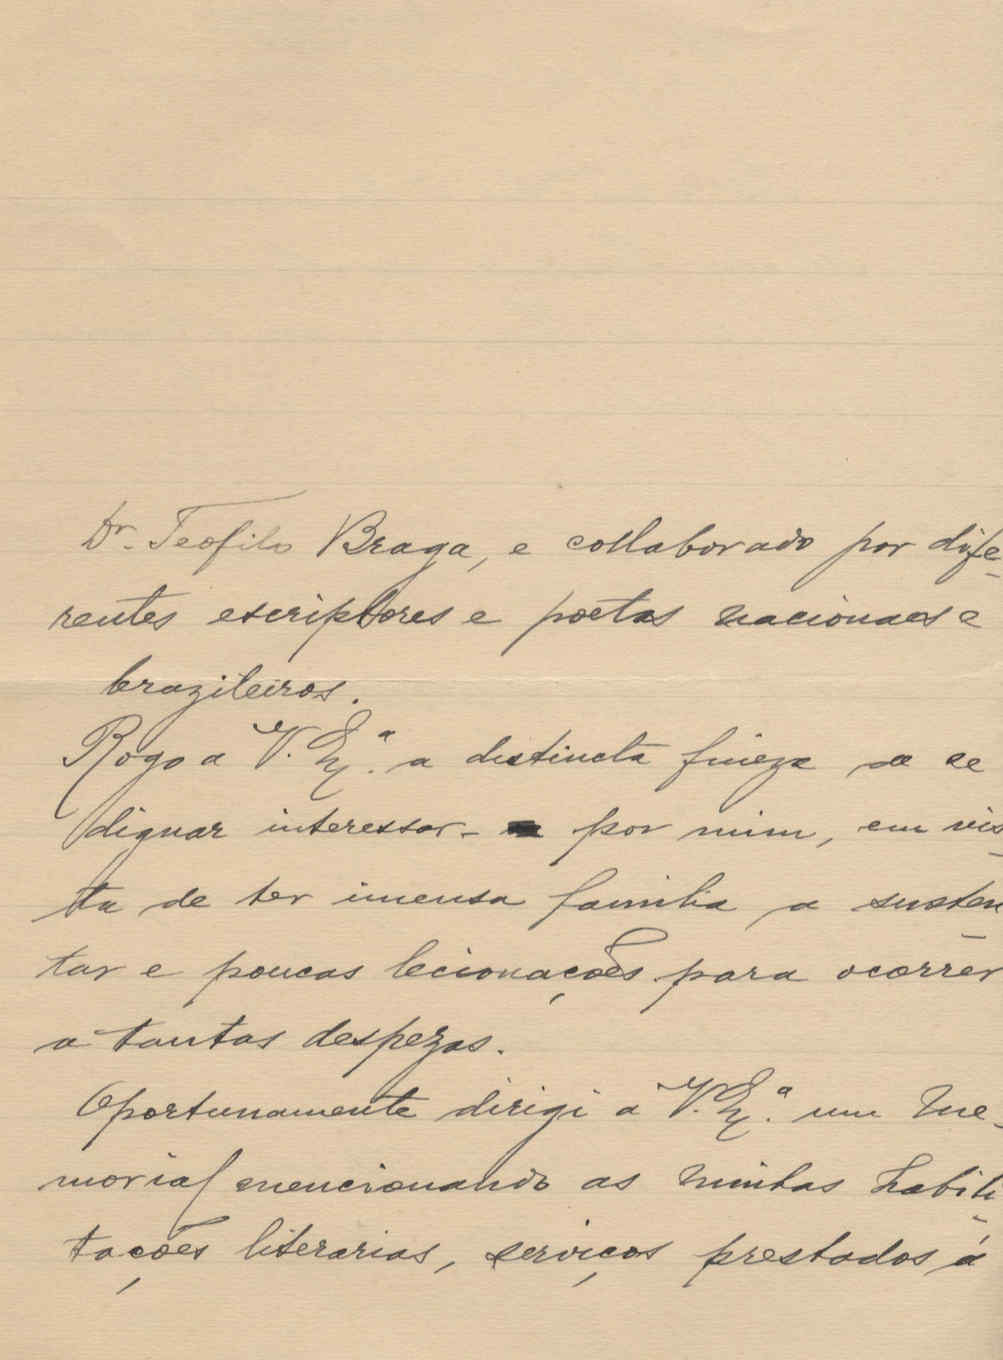 Dr. Teofilo Braga, e collaborado por dife-
rentes escriptores e poetas nacionaes e
brazileiros.
Rogo a V. Ex.ª a distincta fineza de se
dignar interessar- por mim, em vis-
ta de ter imensa familia a susten-
tar e poucas lecionações para ocorrer
a tantas despezas.
Oportunamente dirigi a V. Ex.ª um Me-
morial mencionando as minhas habili-
tações literarias, serviços prestados á